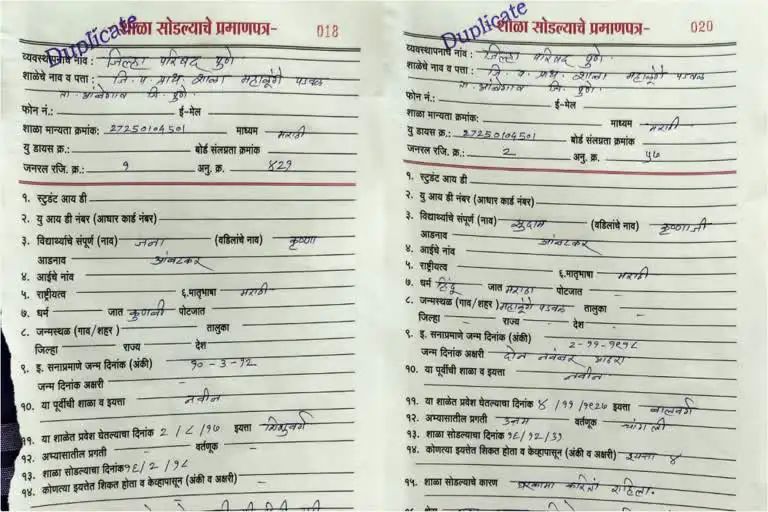 Duplicate
शाळा सोडल्याचे प्रमाणपत्र-
018
व्यवस्थापनाचे नाव : जिल्हा परिषद पुणे
शाळेचे नाव व पत्ता : जि. प. प्राथ. शाळा महाळुंगे पडवळ
ता. आंबेगाव जि. पुणे.
फोन नं.: ई-मेल
शाळा मान्यता क्रमांक: 27250104501 माध्यम मराठी
यु डायस क्र.: बोर्ड संलग्रता क्रमांक
जनरल रजि. क्र.: १ अनु. क्र. ४२१
१. स्टुडंट आय डी
२. यु आय डी नंबर (आधार कार्ड नंबर)
३. विद्यार्थ्याचे संपूर्ण (नाव) जना (वडिलांचे नाव) कृष्णा
आडनाव आंबटकर
४. आईचे नांव
५. राष्ट्रीयत्व ६.मातृभाषा मराठी
७. धर्म जात कुणबी पोटजात
८. जन्मस्थळ (गाव/शहर ) तालुका
जिल्हा राज्य देश
९. इ. सनाप्रमाणे जन्म दिनांक (अंकी) १०-३-१२
जन्म दिनांक अक्षरी
१०. या पूर्वीची शाळा व इयत्ता नवीन
११. या शाळेत प्रवेश घेतल्याचा दिनांक 2/८/१७ इयत्ता शिशुवर्ग
१२. अभ्यासातील प्रगती वर्तणूक
१३. शाळा सोडल्याचा दिनांक १६/2/१८
१४. कोणत्या इयत्तेत शिकत होता व केव्हापासून (अंकी व अक्षरी)
Duplicate
शाळा सोडल्याचे प्रमाणपत्र-
020
व्यवस्थापनाचे नांव : जिल्हा परिषद पुणे
शाळेचे नाव व पत्ता : जि. प. प्राथ. शाळा महाळुंगे पडवळ
ता. आंबेगाव जि. पुणे.
फोन नं.: ई-मेल
शाळा मान्यता क्रमांक: माध्यम मराठी
यु डायस क्र.: 27250104501 बोर्ड संलग्रता क्रमांक
जनरल रजि. क्र.: 2 अनु. क्र. ५७
१. स्टुडंट आय डी
२. यु आय डी नंबर (आधार कार्ड नंबर)
३. विद्यार्थ्याचे संपूर्ण (नाव) सुदाम (वडिलांचे नाव) कृष्णाजी
आडनाव आंबटकर
४. आईचे नांव
५. राष्ट्रीयत्व ६.मातृभाषा मराठी
७. धर्म हिंदू जात मराठा पोटजात
८. जन्मस्थळ (गाव/शहर ) महाळुंगे पडवळ तालुका
जिल्हा राज्य देश
९. इ. सनाप्रमाणे जन्म दिनांक (अंकी)
2-११-१९१८
जन्म दिनांक अक्षरी दोन नवंबर अठरा
१०. या पूर्वीची शाळा व इयत्ता नवीन
११. या शाळेत प्रवेश घेतल्याचा दिनांक ४/११/१९२७ इयत्ता बालवर्ग
१२. अभ्यासातील प्रगती उत्तम वर्तणूक चांगली
१३. शाळा सोडल्याचा दिनांक १६/१२/३१
१४. कोणत्या इयत्तेत शिकत होता व केव्हापासून (अंकी व अक्षरी) इयत्ता ४
१५. शाळा सोडल्याचे कारण घरकामा करितां राहिला.